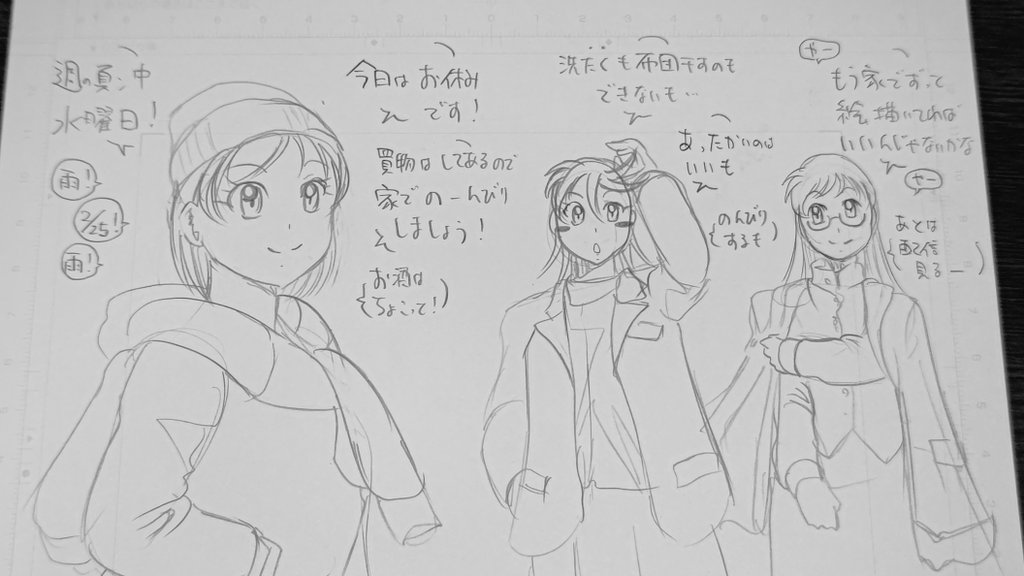 週の真ン中
水曜日!
雨!
2/25!
雨!
今日はお休み
です!
買物はしてあるので
家でのーんびり
しましょう!
お酒は
ちょこって!
洗たくも布団干すのも
できないも…
あったかいのは
いいも
のんびり
するも
やー
もう家でずって
絵描いてれば
いいんじゃないかな
やー
あとは
配信
見るー